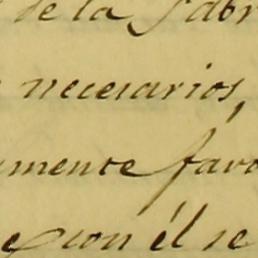 de la Fabr
necesarios,
mente favo
exion él se